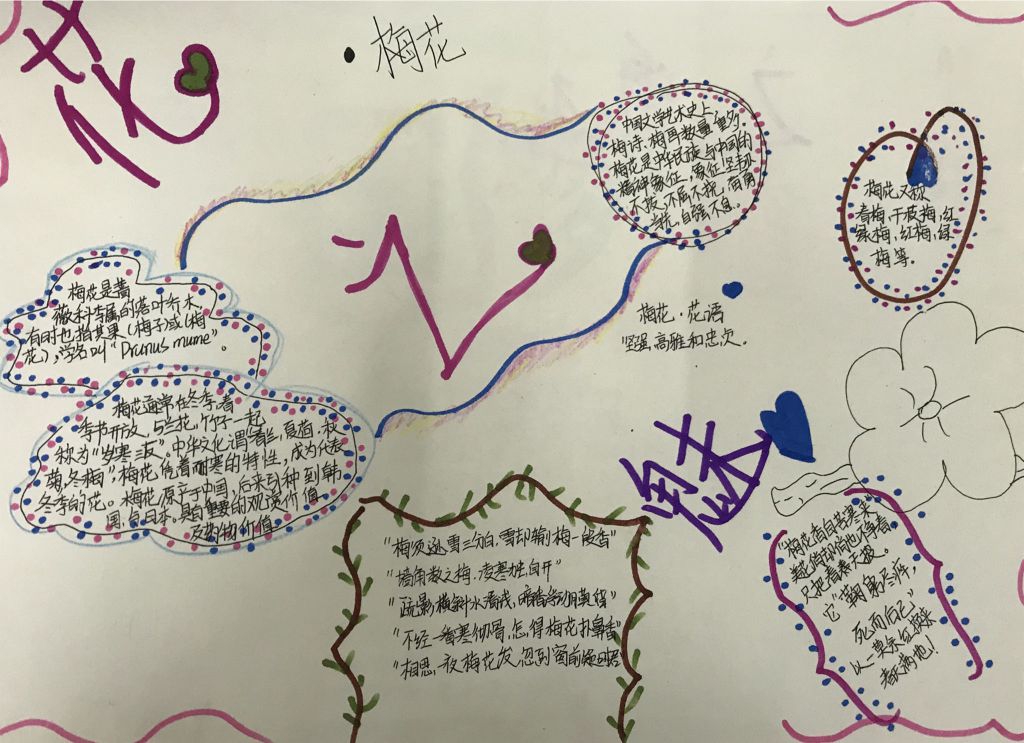 花
梅花
中国文学艺术史上,
梅诗、梅画数量重多。
梅花是中华民族与中国的
精神象征,象征坚韧
不拔,不屈不挠,奋勇
当先,自强不息。
梅花又称
春梅,干枝梅,红
绿梅,红梅,绿
梅等。
梅花是蔷
薇科李属的落叶乔木,
有时也指其果(梅子)或(梅
花),学名叫"Prunus mume"。
梅花·花语
坚强,高雅和忠贞。
梅花通常在冬季,春
季节开放,与兰花,竹子一起
称为"岁寒三友"。中华文化谓春兰,夏荷,秋
菊,冬梅",梅花凭着耐寒的特性,成为代表
冬季的花。梅花原产于中国,后来引种到韩
国,与日本。具有重要的观赏价值
及药物价值。
"梅须逊雪三分白,雪却输梅一段香"
"墙角数之梅.凌寒独自开"
"疏影横斜水清浅,暗香浮动月黄昏"
"不经一番寒彻骨,怎得梅花扑鼻香"
"相思一夜梅花发,忽到窗前疑是君"
"梅花香自苦寒来"
美花俏却俏也不争春,
只把春来天报。
它"鞠躬尽瘁,
死而后已"
以一
春天满地!